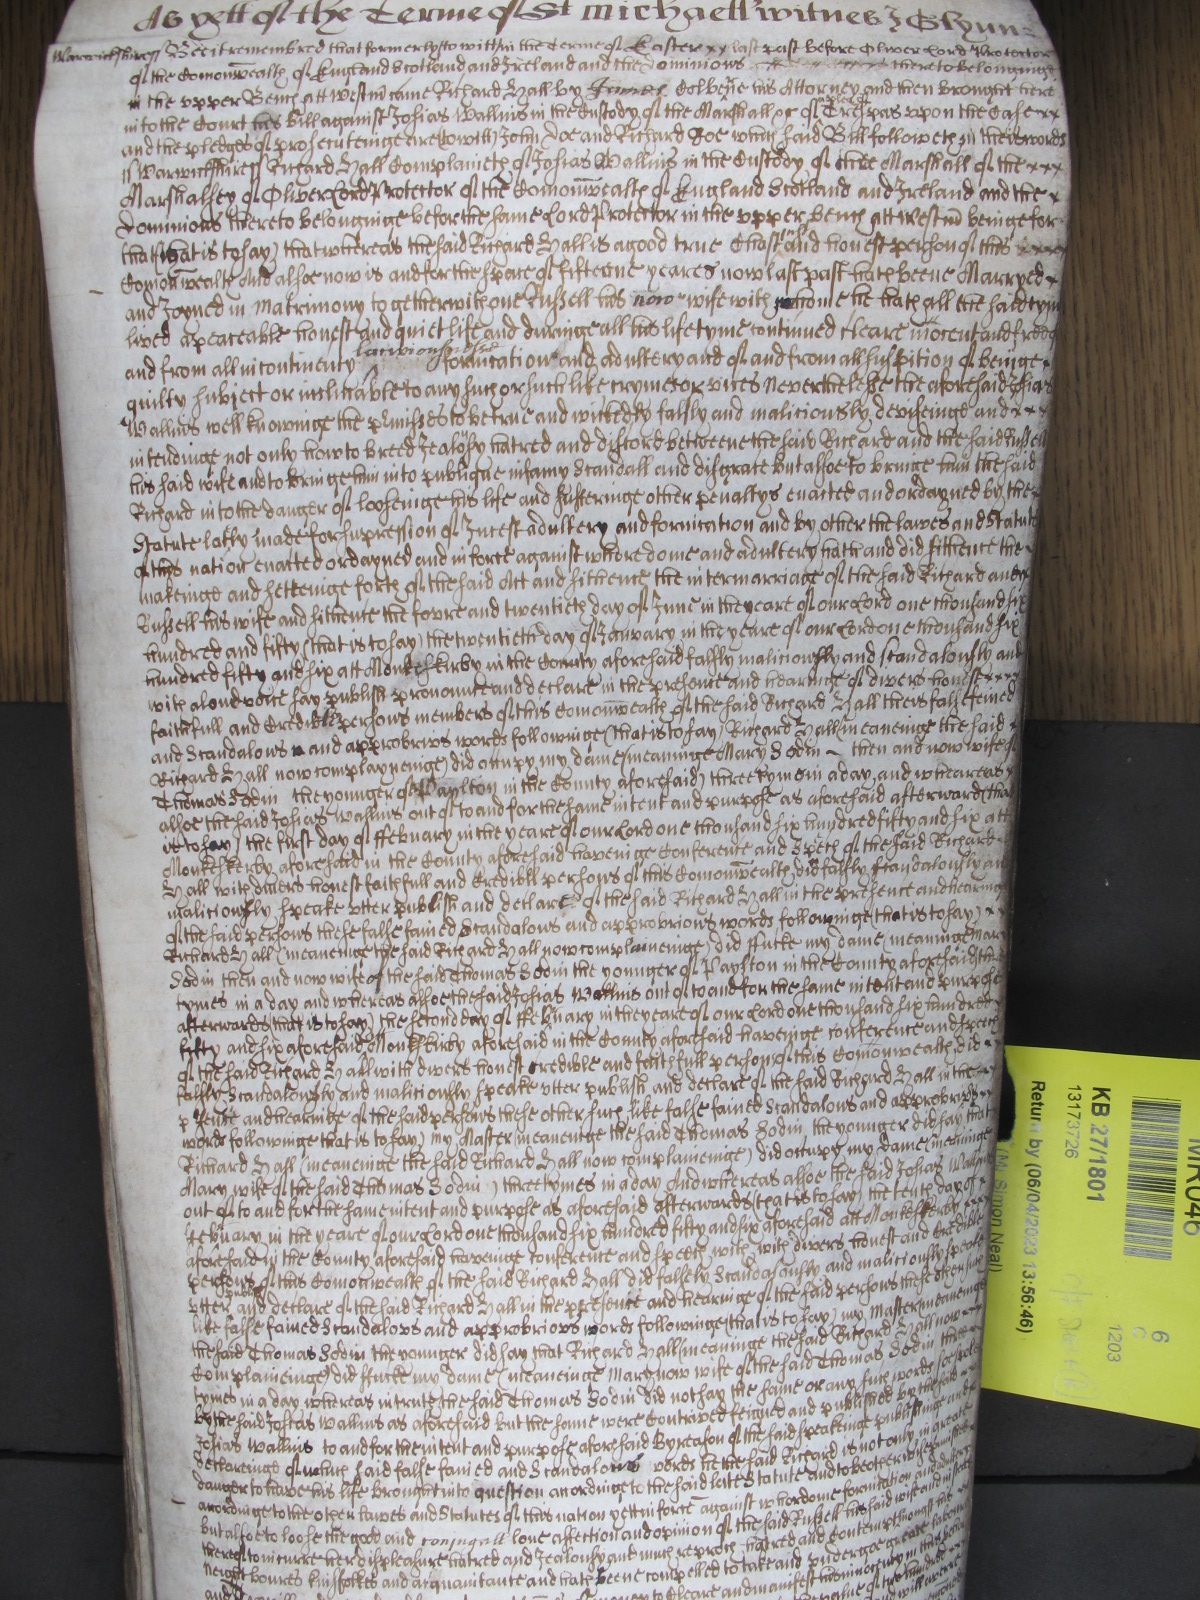 As yett of the Terme of St Michaell witnes J Glynn
Warwickshire ss Bee it remembred that formerly to witt in the Terme of Easter xx last past before Oliver Lord Protector
of the Comonwealth of England Scotland and Ireland and the Dominions thereto belonginge
in the vpper Bench att Westm came Richard Hall by James his Attorney and then brought here
into the Court his bill against Josias Wallins in the Custody of the Marshall &c of Trespas vpon the Case xx
and the pledges of prosecuteinge are to witt John Doe and Richard Roe which said Bill followeth in theis words
ss Warwickshire ss Richard Hall Complaineth of Josias Wallins in the Custody of the Marshall of the xxx
Marshalsey of Oliver Lord Protector of the Comonwealth of England Scotland and Ireland and the x
Dominions thereto belonginge before the same Lord Protector in the vpper bench att Westm beinge for
that (that is to say) that whereas the said Richard Hall is a good true Chast and honest person of this
Comonwealth And alsoe now is and for the space of fifteene yeares now last past hath beene Marryed
and Joyned in Matrimony together with one Russell his now wife with whome he hath all the said tyme
lived a peaceable honest and quiet life and duringe all his life tyme continued cleare inocent and
and from all incontinency fornication and adultery and of and from all suspition of beinge x
guilty subject or to any such or such like crymes or vices Neverthelesse the aforesaid Josias
Wallins well knowinge the p'misses to be true and wickedly falsly and maliciously deviseinge and xxx
intendinge not only how to breed Jealosy hatred and discord betweene the said Richard and the said Russell
his said wife and to bringe him into publique infamy Scandall and disgrace but alsoe to bringe him the said
Richard into the danger of looseinge his life and sufferinge other penaltys enacted and ordayned by the
Statute lately made for supression of Incest adultery and fornication and by other the lawes and Statutes
of this nation enacted ordayned and in force against whoredome and adultery hath and did sithence the
makeinge and setteinge forth of the said Act and sithence the intermarriage of the said Richard and
Russell his wife and sithence the fowre and twentieth day of June in the yeare of our Lord one thousand six
hundred and fifty (that is to say) the twentieth day of January in the yeare of our Lord one thousand six
hundred fifty and six att Monkeskirby in the County aforesaid falsly maliciously and scandalously and
with a loud voice say publish pronounce and declare in the presence and hearinge of divers honest xxxx
faithfull and Credible persons members of this Comonwealth of the said Richard Hall theis false feined
and Scandalows and approbrivs words followinge (that is to say) Richard Hall (meaneinge the said
Richard Hall now complayneinge) did occupy my dame (meaninge Mary Sodin then and now wife of
Thomas Sodin the younger of Paylton in the County aforesaid) three tymes in a day and wheareas
alsoe the said Josias Wallins out of to and for the same intent and purpose as aforesaid afterwards (that
is to say) the first day of ffebruary in the yeare of our Lord one thousand six hundred fifty and six att
Monkeskerby aforesaid in the County aforesaid haveinge Conference and Speech of the said Richard
Hall with divers honest faithfull and Credibll persons of this Comonwealth did falsly scandalously and
malitiously speake vtter publish and declare of the said Richard Hall in the presence and hearinge
of the said persons these false fained Scandalous and approbrious words followinge (that is to say) xx
Richard Hall (meaneinge the said Richard Hall now complaineinge) did ffucke my dame (meaninge Mary
Sodin then and now wife of the said Thomas Sodin the younger of Paylton in the County aforesaid three
tymes in a day and whereas alsoe the said Josias Wallins out of to and for the same intent and purpose
afterwards (that is to say) the second day of ffebruary in the yeare of our Lord one thousand six hundred
fifty and six aforesaid Monkskirby aforesaid in the County aforesaid haveinge conference and speech
of the said Richard Hall with divers honest credible and faithfull persons of this Comonwealth did
falsly Scandalously and malitiously speake vtter publish and declare of the said Richard Hall in the
p'sence and hearinge of the said persons these other such like false fained Scandalous and approbrivs
words followinge that is to say) my Master (meaneinge the said Thomas Sodin the younger did say that
Richard Hall (meaneinge the said Richard Hall now complaineinge) did occupy my dame (meaninge
Mary wife of the said Thomas Sodin) three tymes in a day and whereas alsoe the said Josias Wallins
out of to and for the same intent and purpose as aforesaid afterwards (that is to say) the tenth day of
ffebruary in the yeare of our Lord one thousand six hundred fifty and six aforesaid att Monkeskerby
aforesaid in the County aforesaid haveinge conference and speech with with divers honest and Credible
persons of this Comonwealth of the said Richard Hall did falsely Scandalously and malitiously speake
vtter publish and declare of the said Richard Hall in the presence and hearinge of the said persons these other such
like false fained Scandalous and approbrious words followinge (that is to say) my Master (meaneinge
the said Thomas Sodin the younger did say that Richard Hall (meaninge the said Richard Hall now
Complaineinge) did ffucke my dame (meaneinge Mary now wife of the said Thomas Sodin three
tymes in a day whereas in truth the said Thomas Sodin did not say the same or any such words
by the said Josias Wallins as aforesaid but the same were Contrived feigned and published by the said
Josias Wallins to and for the intent and purpose aforesaid By reason of the said speakinge publishinge and
declareinge of which said false fained and Scandalous words he the said Richard is not only in greate
danger to have his life brought into question accordinge to the said late Statute and to be otherwise punished
accordinge to the other lawes and Statutes of this nation yett in force against whordome fornication and
but alsoe to loose the good and coniugall love affection and opinion of the said Russell his said wife and
thereof to incurre her displeasure hatred and Jealousy and much reproch hatred and Contempt
neighboures kinsfolkes and acquaintance and hath beene compelled to take and vndergoe greate
KB 27/1801
13173726
Return by (06/04/2023 13:56:46)
(Mr Simon Neal)
MR046
6
C
1203